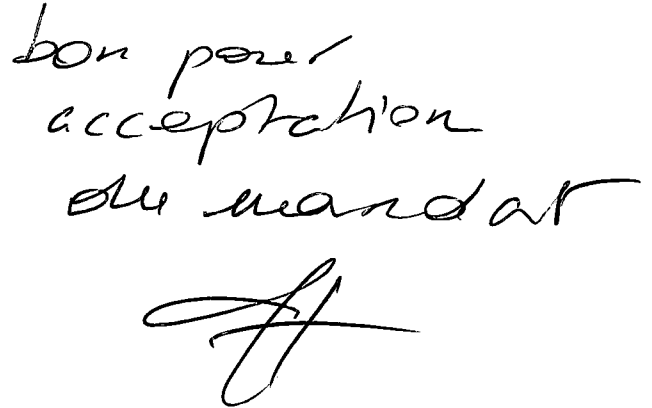 bon pour
acceptation
du mandat